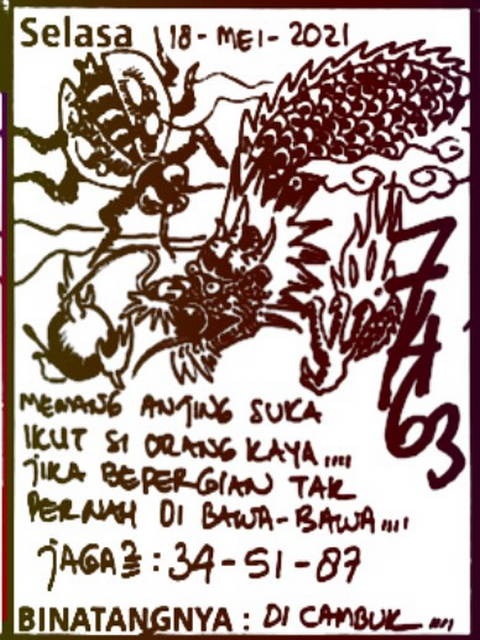 Selasa 18-MEI-2021
7463
MEMANG ANJING SUKA
IKUT SI ORANG KAYA....
JIKA BEPERGIAN TAK
PERNAH DI BAWA-BAWA....
JAGA2 : 34-51-87
BINATANGNYA : DI CAMBUK....